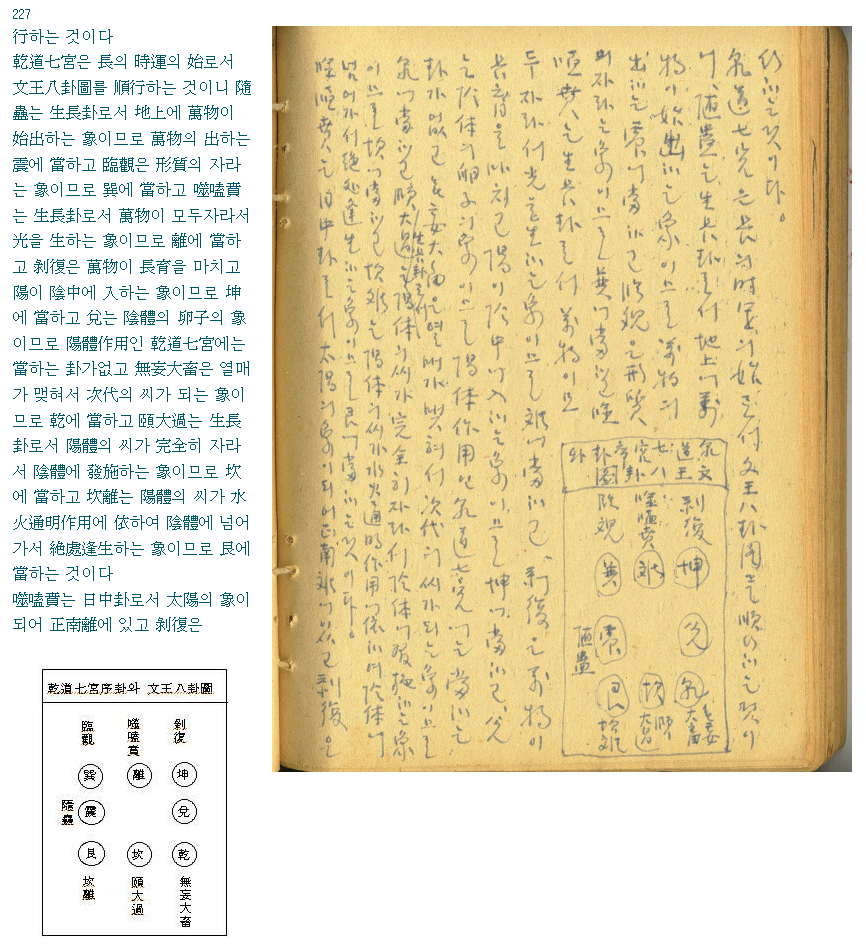 227
行하는 것이다
乾道七宮은 長의 時運의 始로서
文王八卦圖를 順行하는 것이니 隨
蠱는 生長卦로서 地上에 萬物이
始出하는 象이므로 萬物의 出하는
震에 當하고 臨觀은 形質의 자라
는 象이므로 巽에 當하고 噬嗑賁
는 生長卦로서 萬物이 모두자라서
光을 生하는 象이므로 離에 當하
고 剝復은 萬物이 長育을 마치고
陽이 陰中에 入하는 象이므로 坤
에 當하고 兌는 陰體의 卵子의 象
이므로 陽體作用인 乾道七宮에는
當하는 卦가없고 無妄大畜은 열매
가 맺혀서 次代의 씨가 되는 象이
므로 乾에 當하고 頤大過는 生長
卦로서 陽體의 씨가 完全히 자라
서 陰體에 發施하는 象이므로 坎
에 當하고 坎離는 陽體의 씨가 水
火通明作用에 依하여 陰體에 넘어
가서 絕處逢生하는 象이므로 艮에
當하는 것이다
噬嗑賁는 日中卦로서 太陽의 象이
되어 正南離에 있고 剝復은
乾道七宮序卦와 文王八卦圖
臨觀 噬嗑賁 剝復
巽 離 坤
隨蠱 震 兌
艮 坎 乾
坎離 頤大過 無妄大畜
行하는것이다.
乾道七宮은長의時運의始로서文王八卦圖를順行하는것이
니隨蠱는生長卦로서地上에萬
物이始出하는象이므로萬物의
出하는震에當하고臨觀은形質
의자라는象이므로巽에當하고噬
嗑賁는生長卦로서萬物이모
두자라서光을生하는象이므로離에當하고,剝復은萬物이
長育을마치고陽이陰中에入하는象이므로坤에當하고,兌
는陰体의卵子의象이므로陽体作用인乾道七宮에는當하는
卦가없고無妄大畜은열매가맺혀서次代의씨가되는象이므로
乾에當하고頤大過는生長卦로서陽体의씨가完全히자라서陰体에發施하는象
이므로坎에當하고坎離는陽体의씨가水火通明作用에依하여陰体에
넘어가서絕處逢生하는象이므로艮에當하는것이다.
噬嗑賁는日中卦로서太陽의象이되어正南離에있고剝復은
乾道七宮序卦와
文王八卦圖
臨觀 噬嗑賁 剝復
巽 離 坤
隨蠱 震 兌
艮 坎 乾
坎離 頤大過 無妄大畜